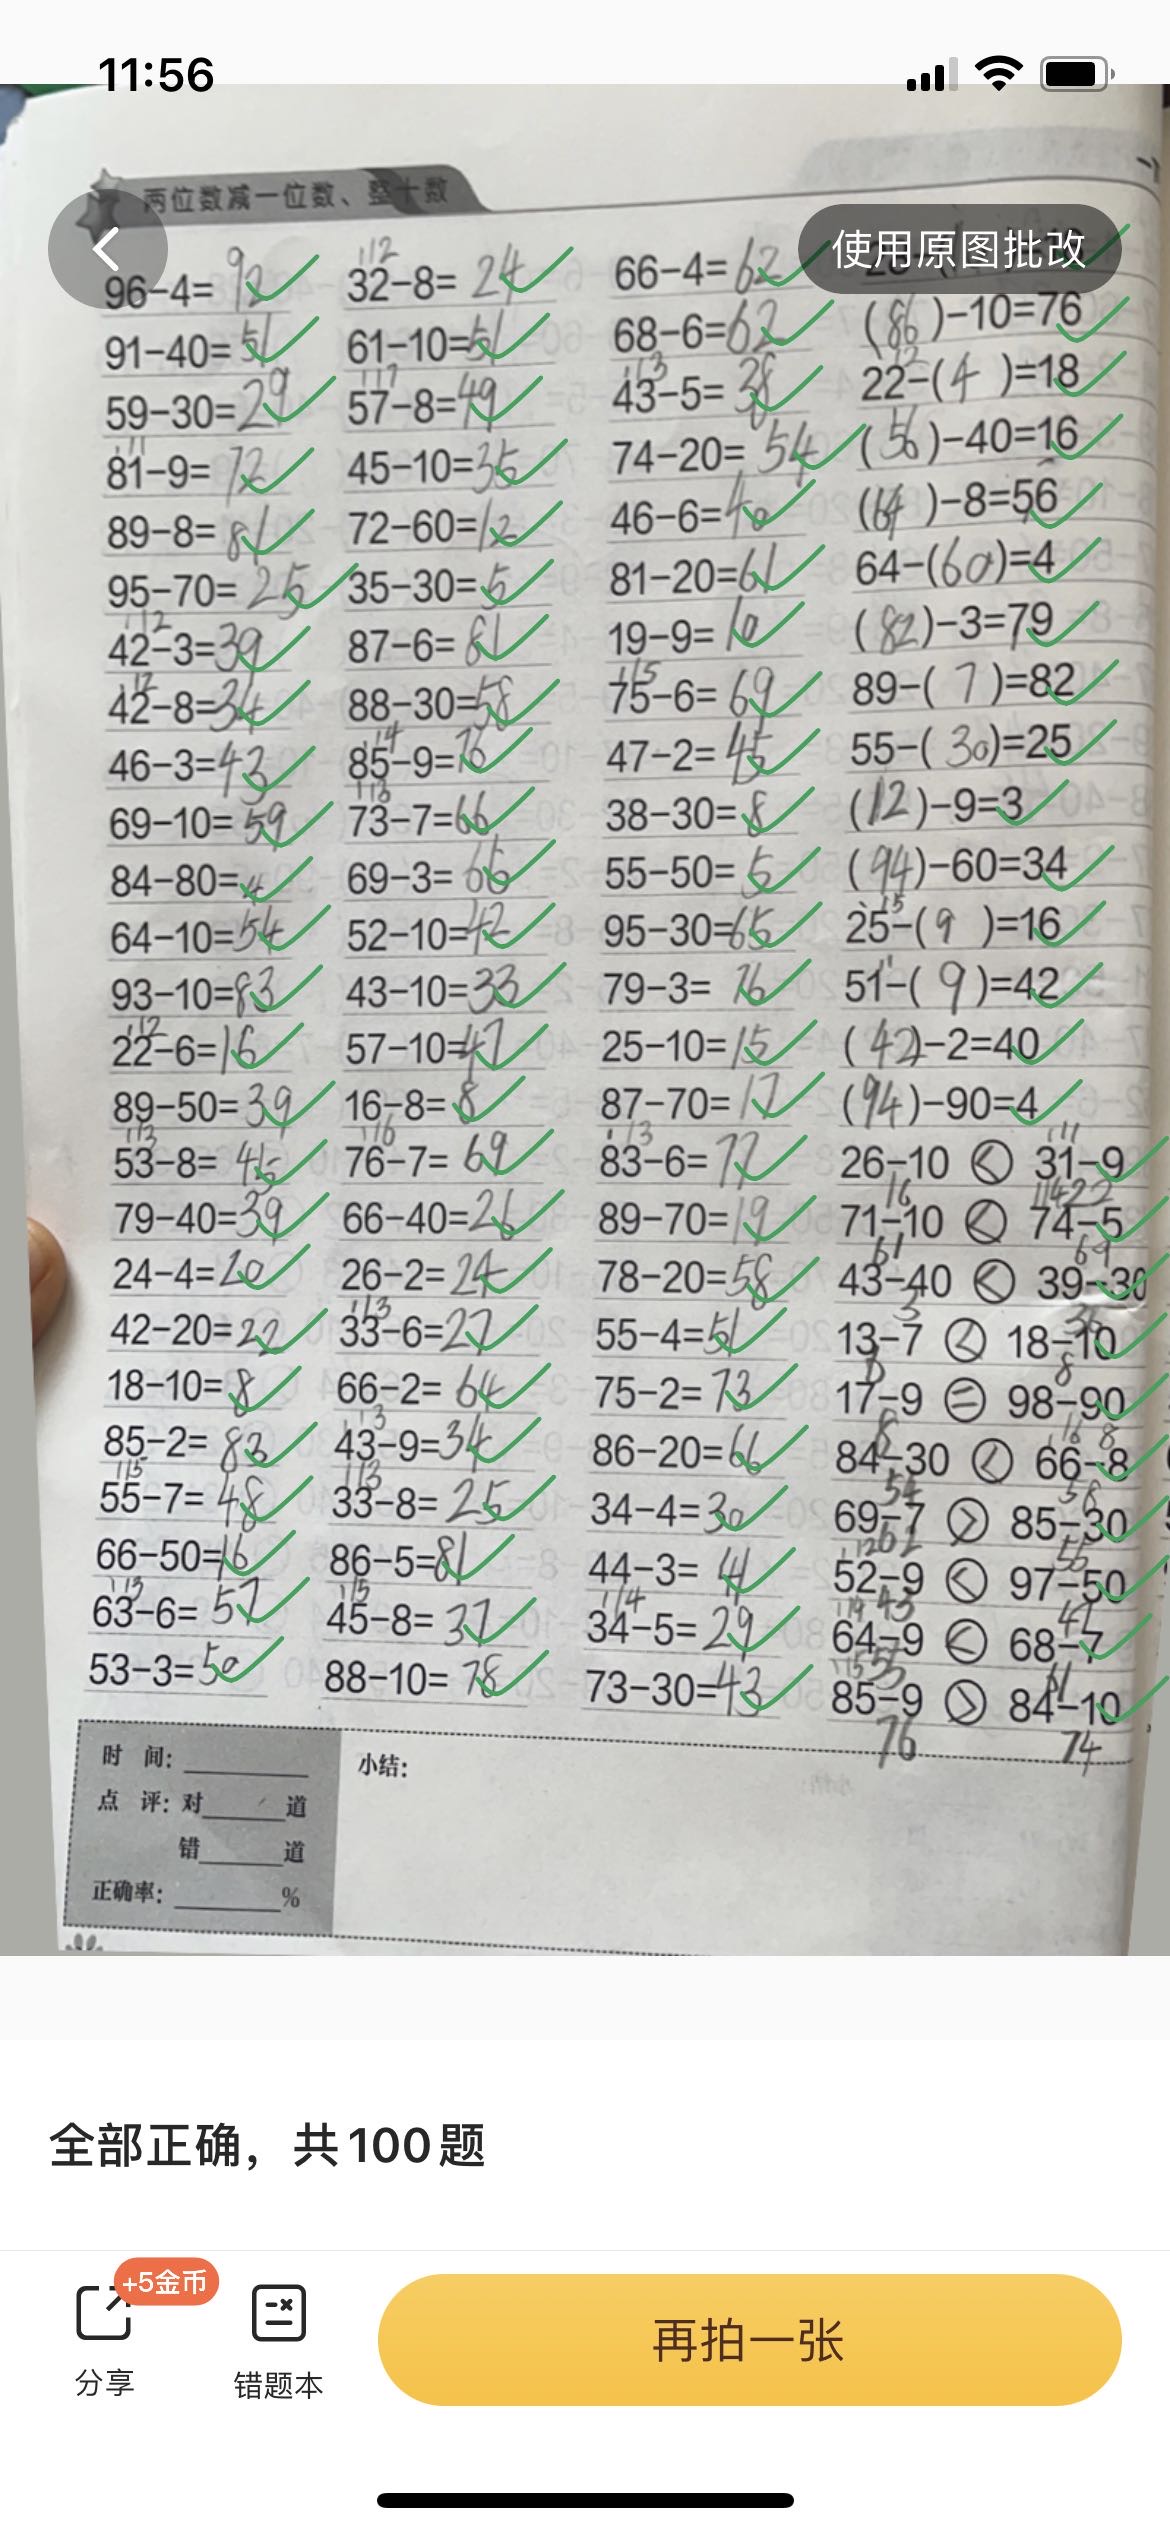 11:56
两位数减一位数、整十数
使用原图批改
96-4=92
91-40=51
59-30=29
81-9=72
89-8=81
95-70=25
42-3=39
42-8=34
46-3=43
69-10=59
84-80=4
64-10=54
93-10=83
22-6=16
89-50=39
53-8=45
79-40=39
24-4=20
42-20=22
18-10=8
85-2=83
55-7=48
66-50=16
63-6=57
53-3=50
32-8=24
61-10=51
57-8=49
45-10=35
72-60=12
35-30=5
87-6=81
88-30=58
85-9=76
73-7=66
69-3=66
52-10=42
43-10=33
57-10=47
16-8=8
76-7=69
66-40=26
26-2=24
33-6=27
66-2=64
43-9=34
33-8=25
86-5=81
45-8=37
88-10=78
66-4=62
68-6=62
43-5=38
74-20=54
46-6=40
81-20=61
19-9=10
75-6=69
47-2=45
38-30=8
55-50=5
95-30=65
79-3=76
25-10=15
87-70=17
83-6=77
89-70=19
78-20=58
55-4=51
75-2=73
86-20=66
34-4=30
44-3=41
34-5=29
73-30=43
(86)-10=76
22-(4)=18
(56)-40=16
(64)-8=56
64-(60)=4
(82)-3=79
89-(7)=82
55-(30)=25
(12)-9=3
(94)-60=34
25-(9)=16
51-(9)=42
(42)-2=40
(94)-90=4
26-10 < 31-9
16 22
71-10 < 74-5
61 69
43-40 < 39-30
3
13-7 < 18-10
6 8
17-9 = 98-90
8 8
84-30 < 66-8
54 58
69-7 > 85-30
62 55
52-9 < 97-50
43 47
64-9 < 68-7
55 61
85-9 > 84-10
76 74
时 间:
点 评: 对 道
错 道
正确率: %
小结:
全部正确，共100题
+5金币
分享
错题本
再拍一张